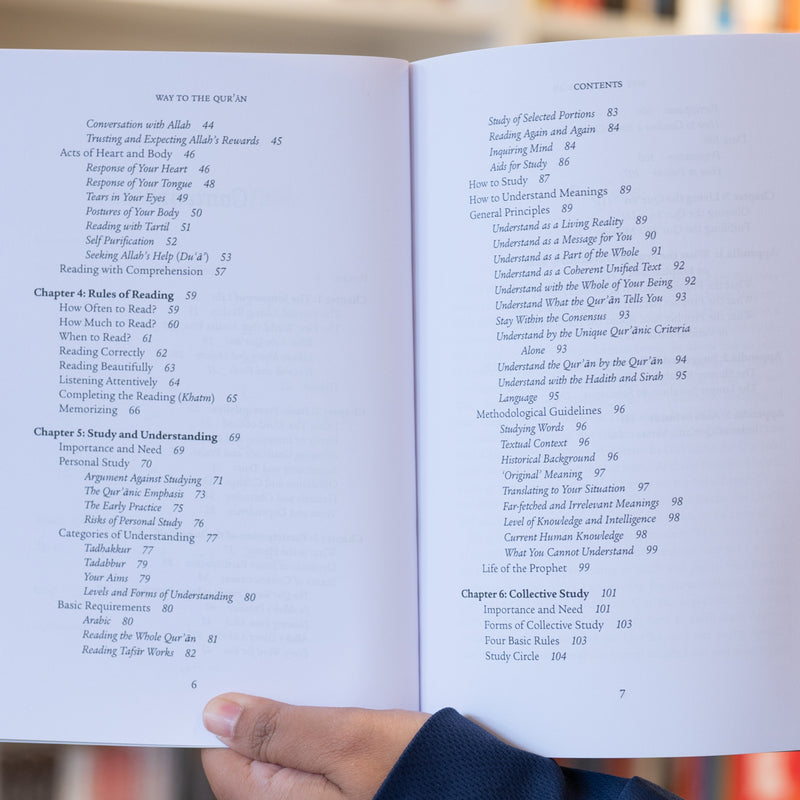 WAY TO THE QUR'ĀN
Conversation with Allah 44
Trusting and Expecting Allah's Rewards 45
Acts of Heart and Body 46
Response of Your Heart 46
Response of Your Tongue 48
Tears in Your Eyes 49
Postures of Your Body 50
Reading with Tartīl 51
Self Purification 52
Seeking Allah's Help (Du'ā') 53
Reading with Comprehension 57
Chapter 4: Rules of Reading 59
How Often to Read? 59
How Much to Read? 60
When to Read? 61
Reading Correctly 62
Reading Beautifully 63
Listening Attentively 64
Completing the Reading (Khatm) 65
Memorizing 66
Chapter 5: Study and Understanding 69
Importance and Need 69
Personal Study 70
Argument Against Studying 71
The Qur'ānic Emphasis 73
The Early Practice 75
Risks of Personal Study 76
Categories of Understanding 77
Tadhakkur 77
Tadabbur 79
Your Aims 79
Levels and Forms of Understanding 80
Basic Requirements 80
Arabic 80
Reading the Whole Qur'ān 81
Reading Tafsīr Works 82
6
CONTENTS
Study of Selected Portions 83
Reading Again and Again 84
Inquiring Mind 84
Aids for Study 86
How to Study 87
How to Understand Meanings 89
General Principles 89
Understand as a Living Reality 89
Understand as a Message for You 90
Understand as a Part of the Whole 91
Understand as a Coherent Unified Text 92
Understand with the Whole of Your Being 92
Understand What the Qur'ān Tells You 93
Stay Within the Consensus 93
Understand by the Unique Qur'ānic Criteria
Alone 93
Understand the Qur'ān by the Qur'ān 94
Understand with the Hadith and Sirah 95
Language 95
Methodological Guidelines 96
Studying Words 96
Textual Context 96
Historical Background 96
'Original' Meaning 97
Translating to Your Situation 97
Far-fetched and Irrelevant Meanings 98
Level of Knowledge and Intelligence 98
Current Human Knowledge 98
What You Cannot Understand 99
Life of the Prophet 99
Chapter 6: Collective Study 101
Importance and Need 101
Forms of Collective Study 103
Four Basic Rules 103
Study Circle 104
7